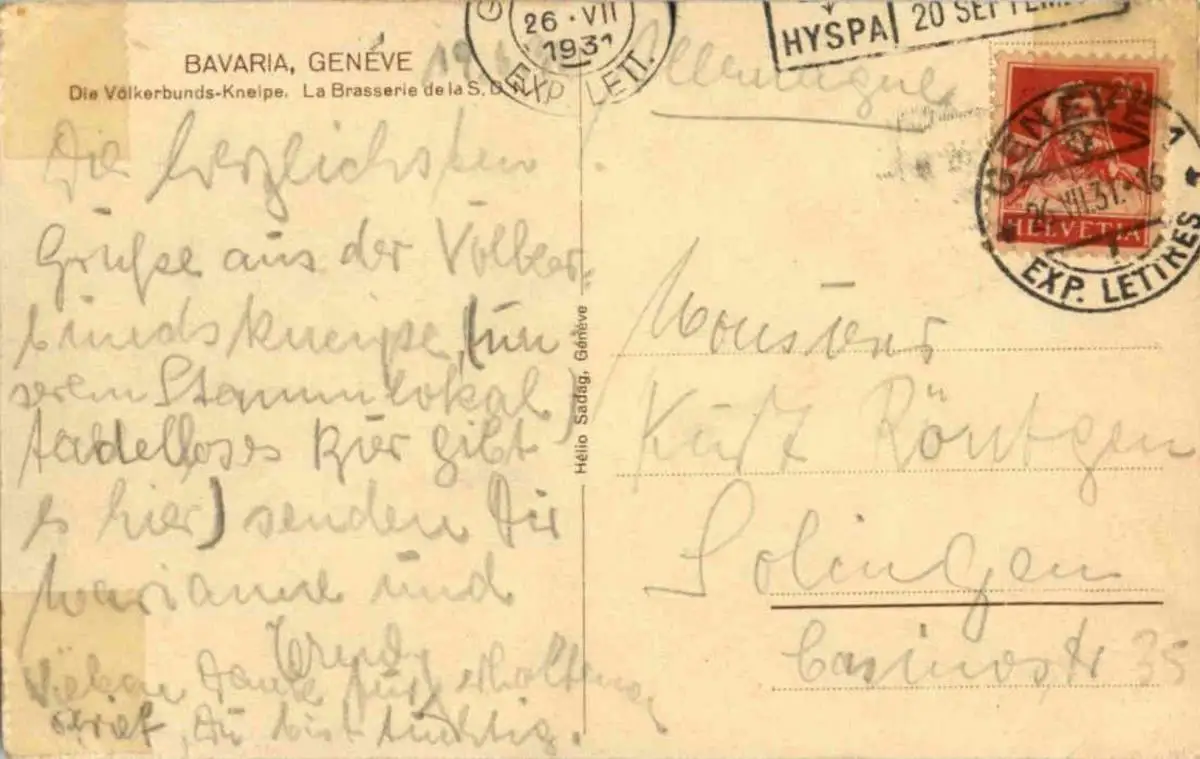 BAVARIA, GENÈVE
Die Völkerbunds-Kneipe. La Brasserie de la S. D. N.
26·VII
1931
EXP. LETT.
HYSPA 20 SEPTEM
Allemagne
GENEVE 1
26.VII.31.-16
EXP. LETTRES
20
HELVETIA
Die herzlichsten
Grüße aus der Völker-
bundskneipe, (un
serem Stammlokal
tadelloses Bier gibt
es hier) senden Dir
Marianne und
Trudy
Vielen Dank für erhaltenen
Brief, Du bist tüchtig.
Hélio Sadag, Genève
Monsieur
Kurt Röntgen
Solingen
Casinostr 35